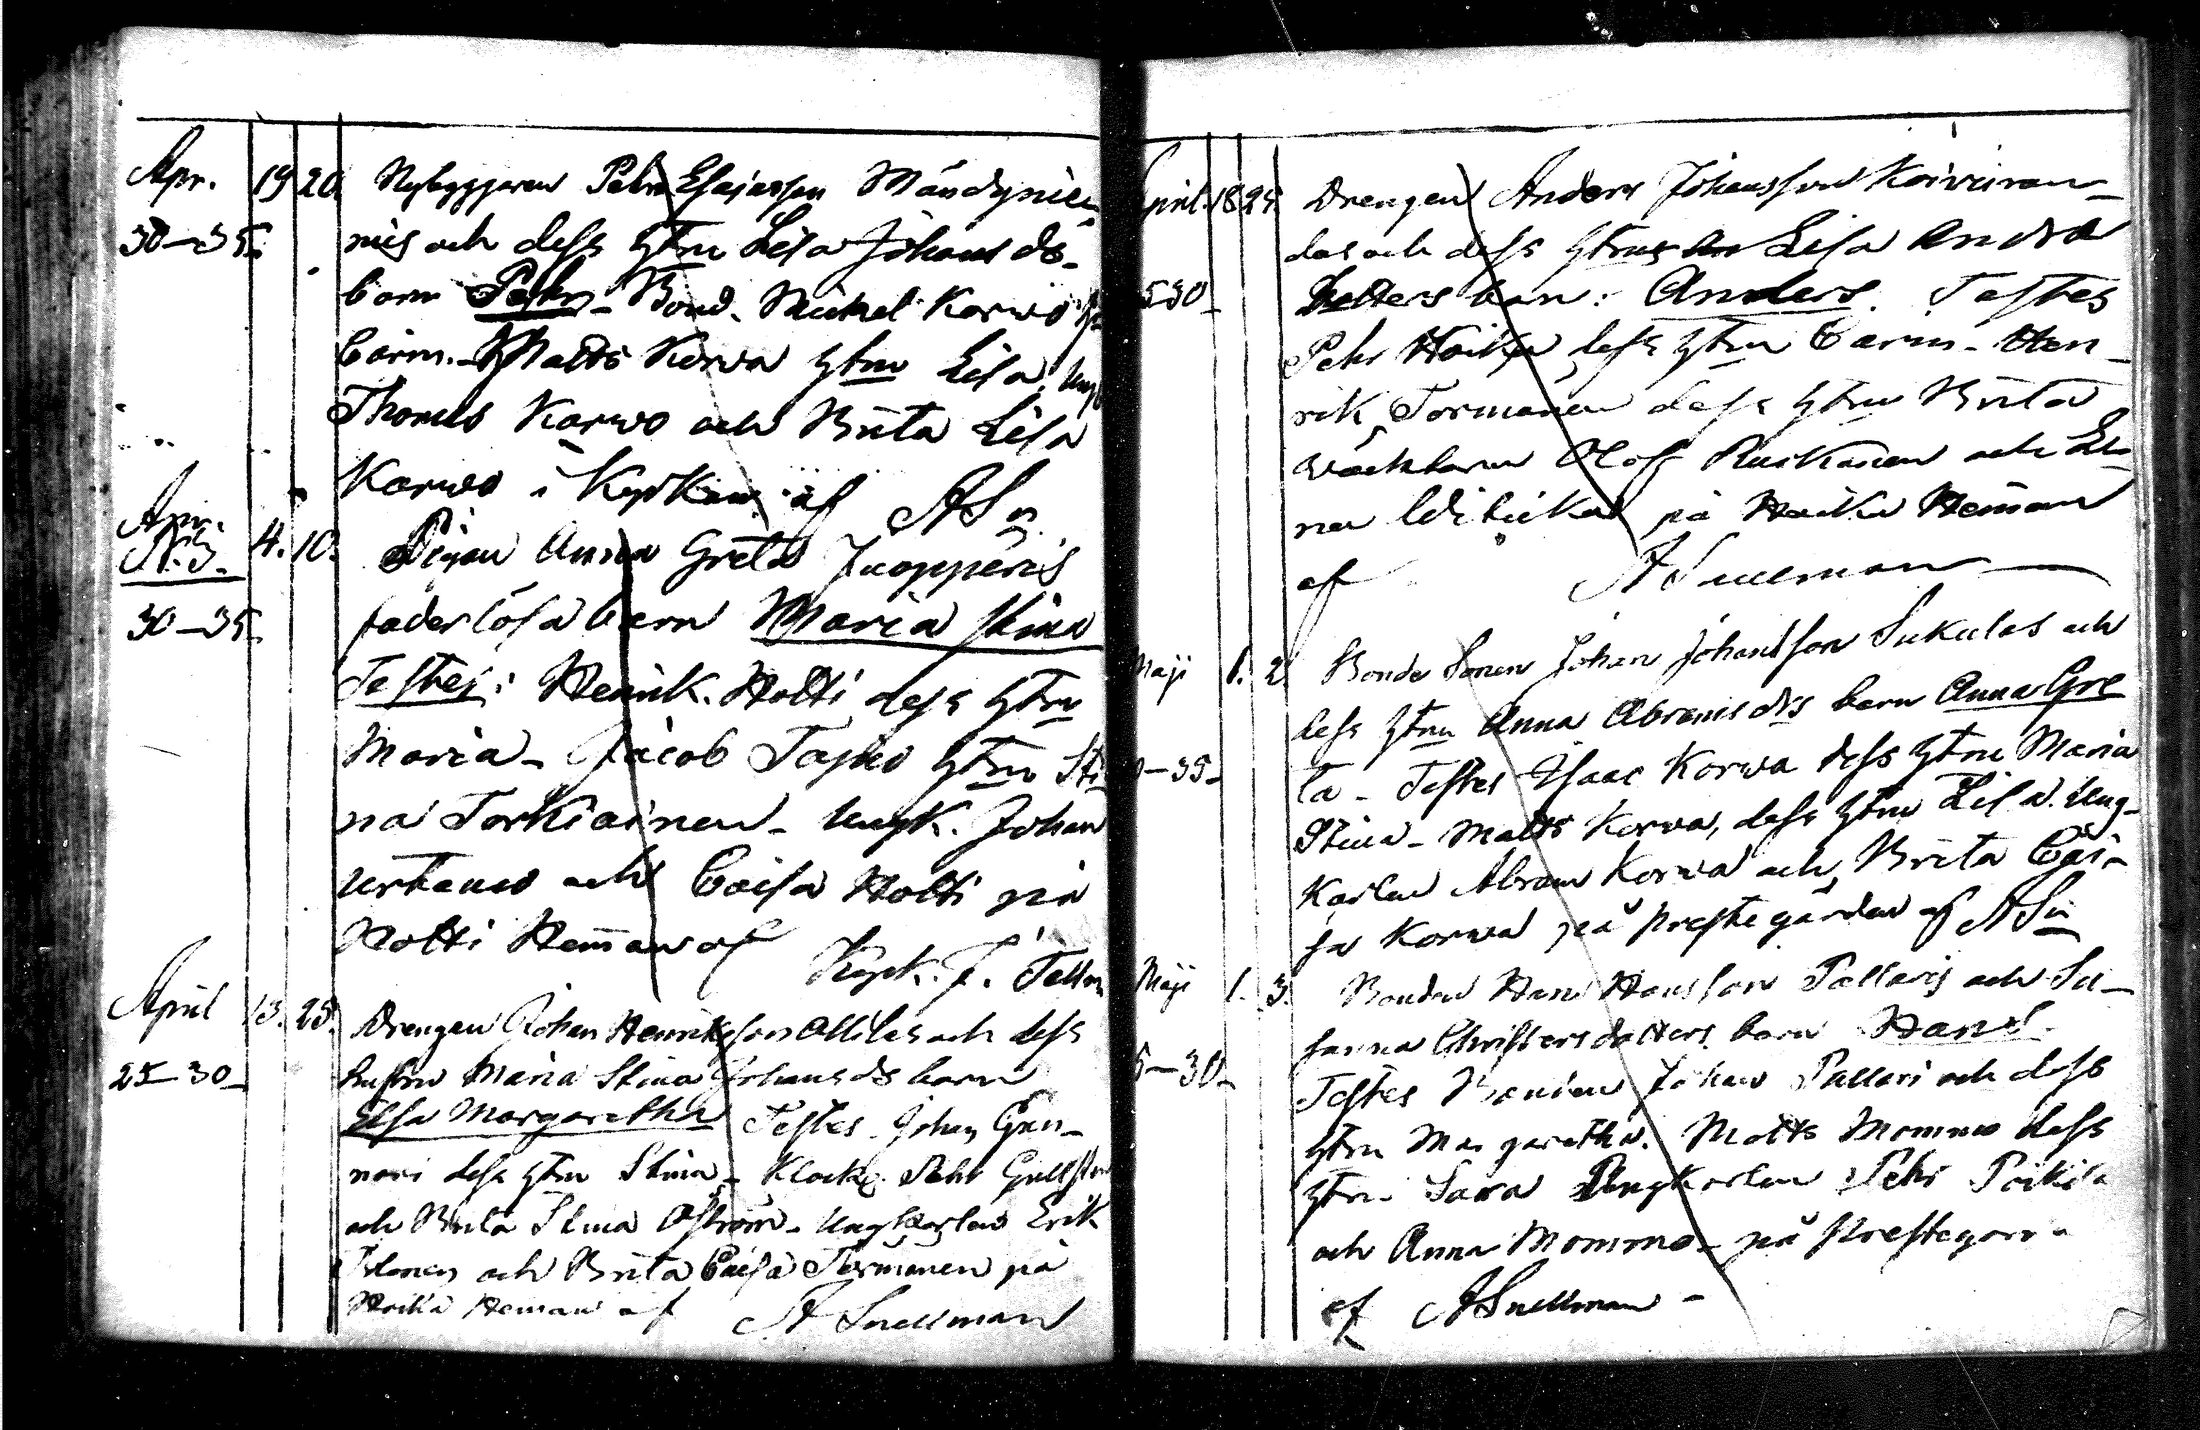 Apr. 19 20. Nybyggaren Pehr Esajasson Mändynie-
30-35. mis och dess hstru Lisa Johans ds.
barn Pehr - Bond. Michel Korwo
Carin. - Matts Korva hstru Lisa, Ung
Thomas Korwo och Brita Lisa
Korwo i Kyrkan af ASn
Apr. 4. 10. Pigan Anna Greta Juopperis
30-35. faderlösa barn Maria Stina
Testes: Henrik Holti dess hstru
Maria - Jacob Tasko hstru Sti-
na Torkiainen - Ungk. Johan
och Caisa Holti på
Holti Heman af
Kyrk. J. Tellm
April 13. 25. Drengen Johan Henriksson Ollilas och dess
25-30- hustru Maria Stina Johans ds barn
Elsa Margaretha Testes Johan Gun-
nari dess hstru Stina - Klock. Pehr Gullsten
och Brita Stina Öström - Ungkarlen Erik
och Brita Caisa Törmänen på
Hoika Heman af A Snellman
April. 18 24. Drengen Anders Johansson Koivuran-
das och dess hstrus Lisa Andrae
5 30- Dotters barn: Anders. Testes
Pehr Hoika dess hstru Carin - Hen-
rik Törmänen dess hstru Brita
Olof Ruikanen och
på Hoika Heman
af A Snellman
Maji 1. 2. Bonde Sonen Johan Johansson Sukulas och
dess hstru Anna Abrams drs barn Anna Gre
-35- ta - Testes Isaac Korwa dess hstru Maria
Stina - Matts Korwa, dess hstru Lisa. Ung-
Karlen Abram Korwa och Brita Cai-
sa Korwa på Prestegården af ASn
Maji 1. 3. Bonden Hans Hansson Pallaris och Su-
sanna Christersdotters barn Hans.
5-30- Testes Bonden Johan Pallari och dess
hstru Margaretha. Matts Mommo dess
hstru Sara Ungkarlen Pehr Poikila
och Anna Mommo - på Prestegår
af A Snellman -